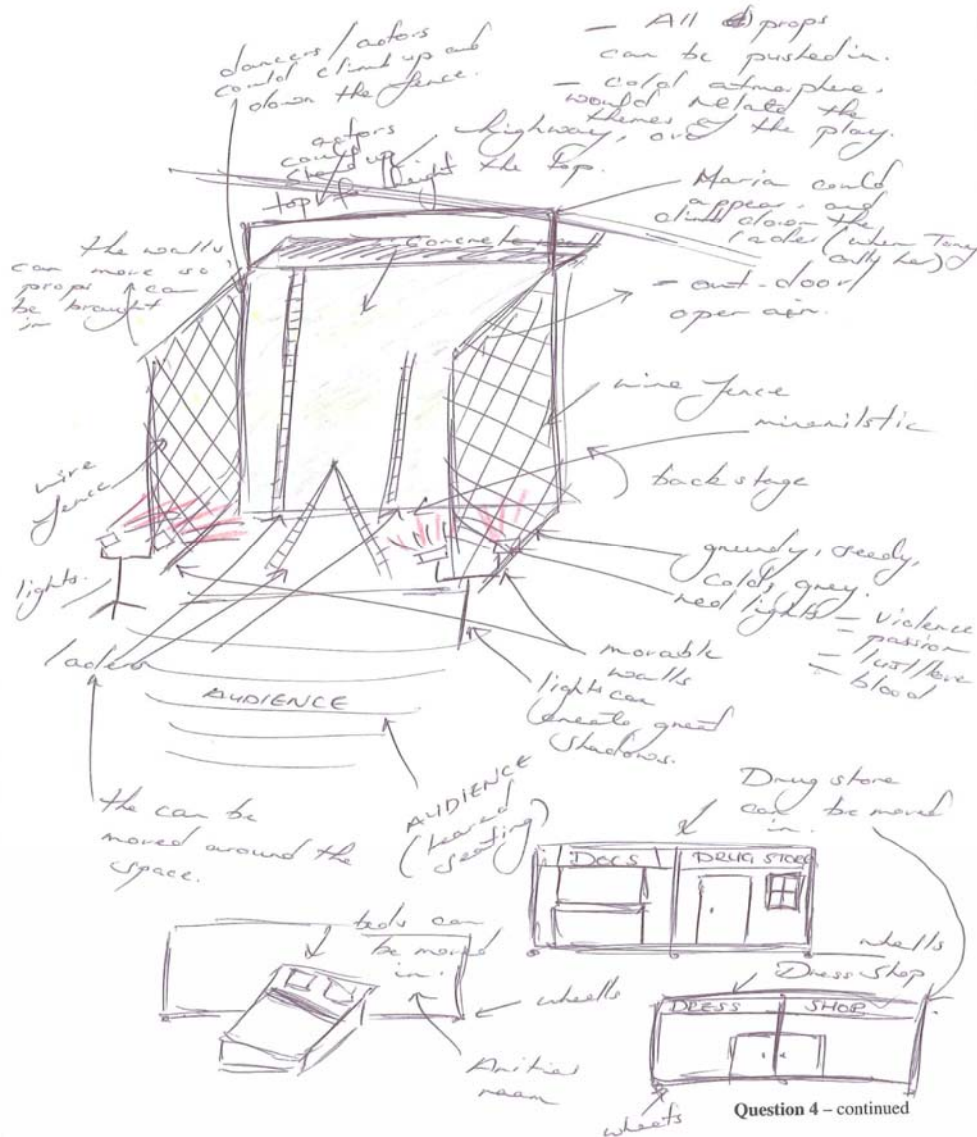 dancers/actors
could climb up and
down the fence.
- All props
can be pushed in.
- cold atmosphere,
would relate the
themes of the play.
actors
could
stand up
top for height
highway, over
the top.
Maria could
appear, and
climb down the
lader (when Tony
calls her)
the walls
can move so
props can
be brought
in
Concrete
- out-door/
open air.
wire fence
minemilstic
back stage
wire
fence
lights.
grundy, seedy,
colds, grey.
red lights - violence
- passion
- lust/love
- blood
laders
movable
walls
lights can
create great
shadows.
AUDIENCE
AUDIENCE
(teared
seating)
the can be
moved around the
space.
Drug store
can be moved
in.
DOCS
DRUG STORE
whells
beds can
be moved
in.
whells
Anities
room
Dress Shop
DRESS SHOP
wheels
Question 4 – continued